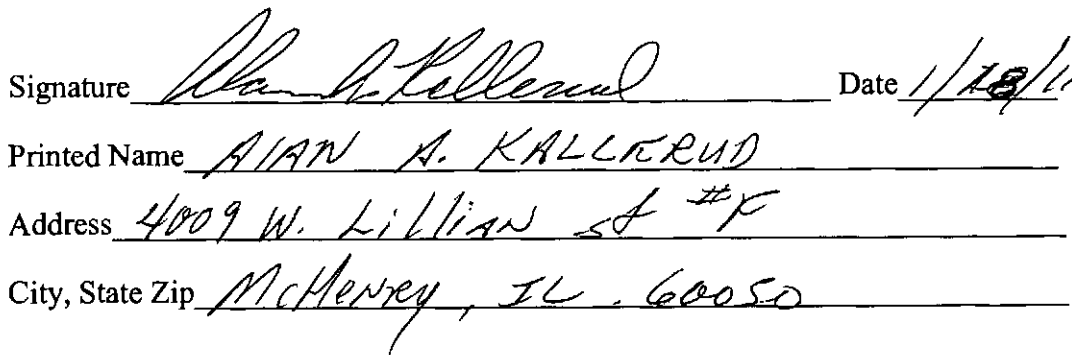 Signature Alan A. Kallerud Date 1/28/11
Printed Name AlAN A. KALLERUD
Address 4009 W. LilliAN st #F
City, State Zip McHenry, IL. 60050